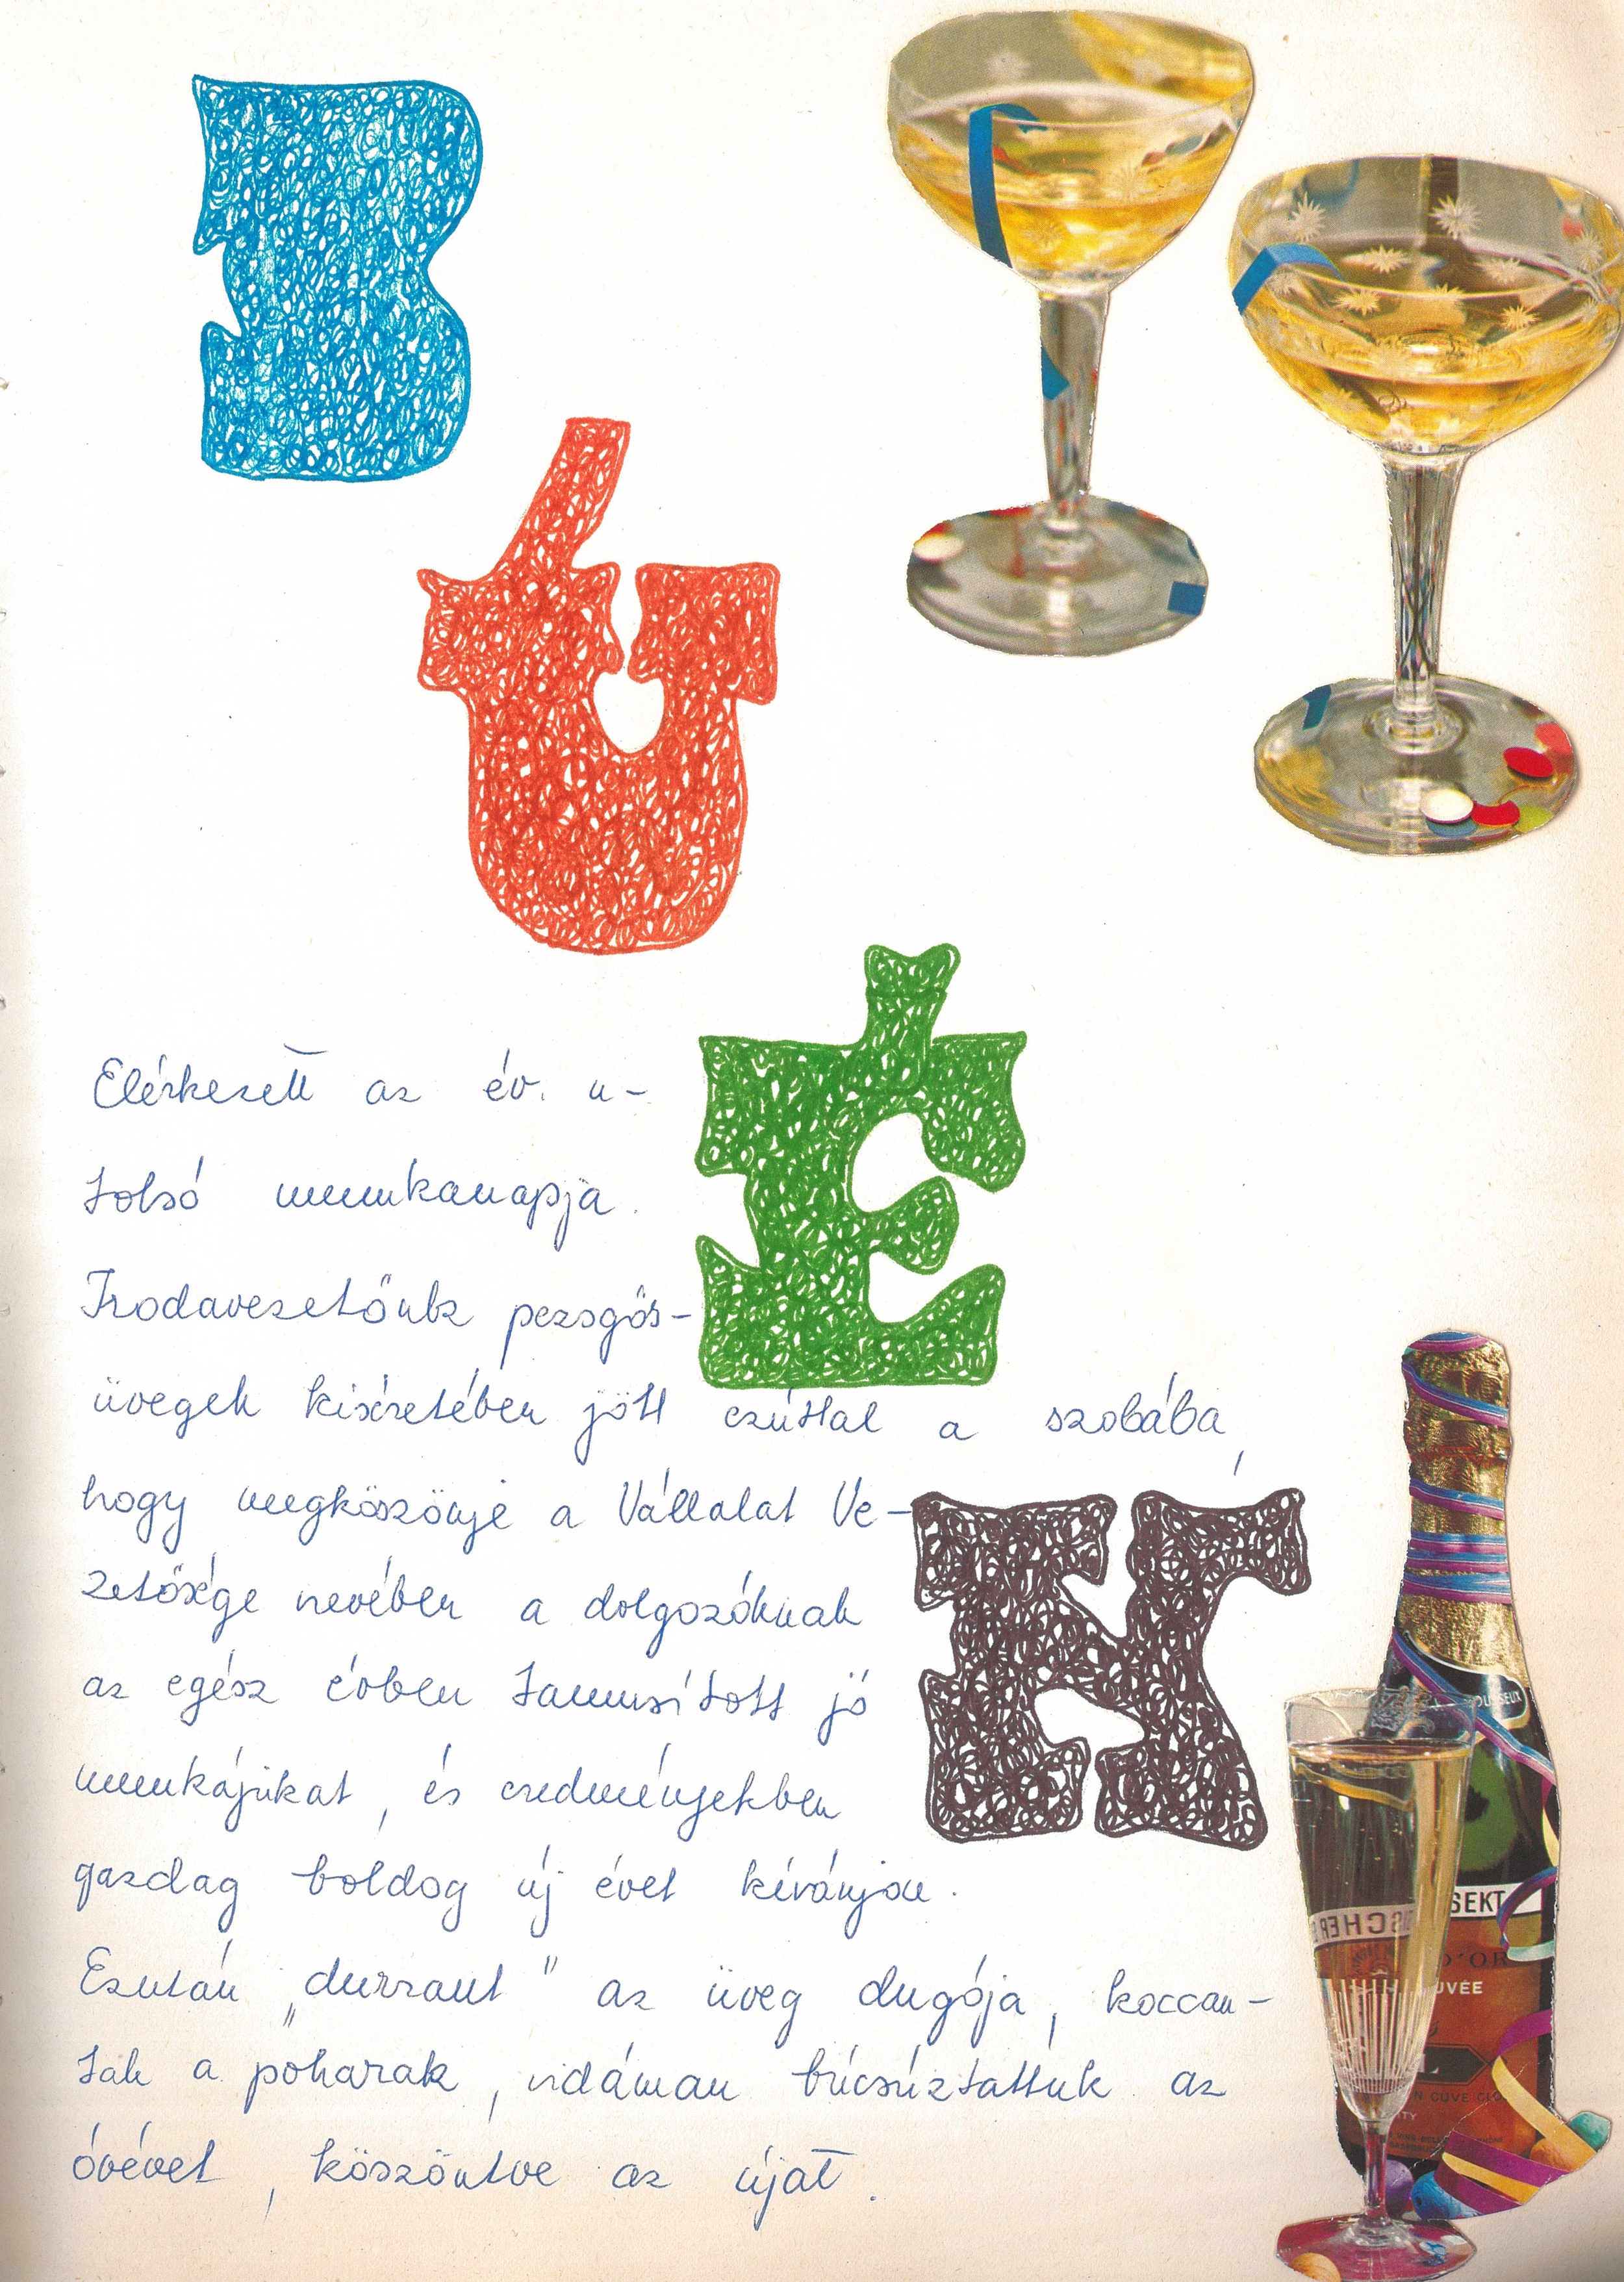 B
Ú
É
K
Elérkezett az év u-
tolsó munkanapja.
Irodavezetőnk pezsgős-
üvegek kiséretében jött ezúttal a szobába,
hogy megköszönje a Vállalat Ve-
zetősége nevében a dolgozóknak
az egész évben tanusított jó
munkájukat, és eredményekben
gazdag boldog új évet kívánjon.
Ezután „durrant" az üveg dugója, koccan-
tak a poharak, vidáman búcsúztattuk az
óévet, köszöntve az újat.
SEKT
D'OR
CUVÉE